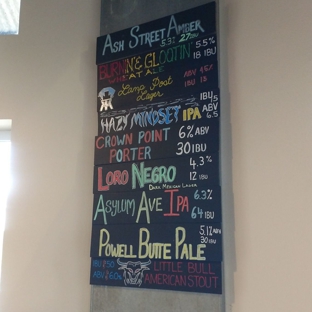 ASH STREET AMBER
5.3% 27 IBU
BURNIN'E GLOOTIN' 5.5%
18 IBU
AT ALE
LAMP POST ABV 4.5%
LAGER IBU 18
HAZY MINDSET IPA
IBU 5
ABV
6.5
CROWN POINT 6% ABV
PORTER 30 IBU
LORO NEGRO 4.3%
12 IBU
DARK MEXICAN LAGER
ASYLUM AVE IPA 6.3%
64 IBU
POWELL BUTTE PALE 5.1% ABV
30 IBU
LITTLE BULL
AMERICAN STOUT